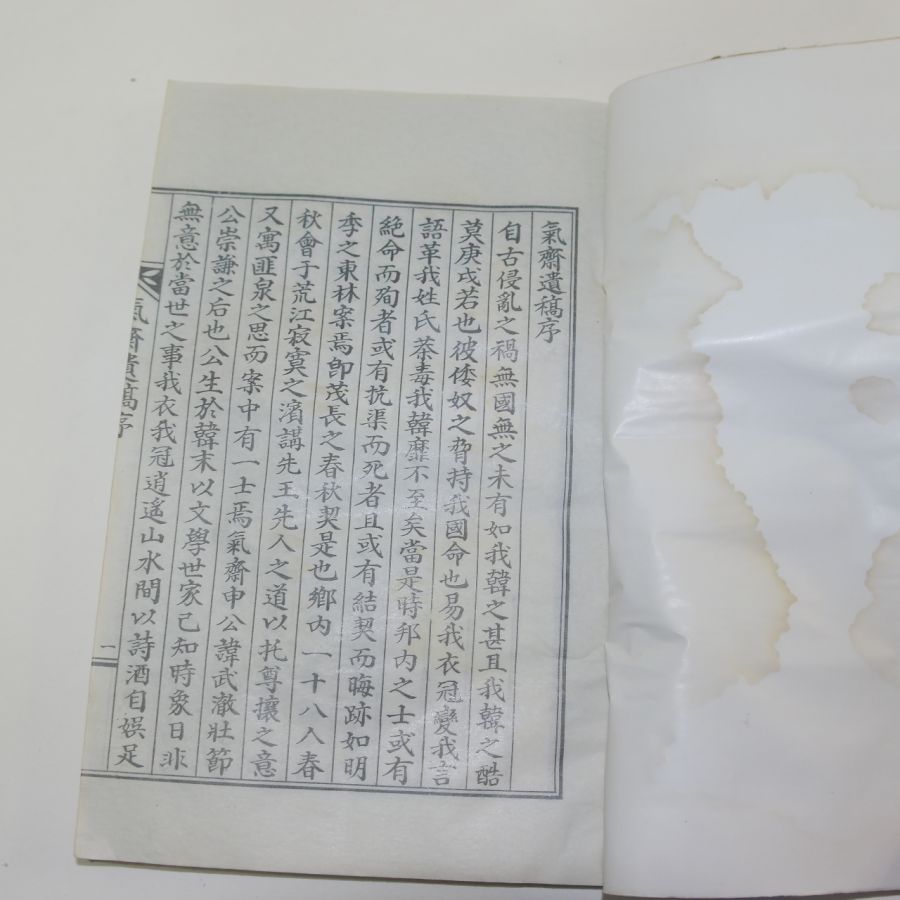 氣齋遺稿序
自古侵亂之禍無國無之未有如我韓之甚且我韓之酷
莫庚戌若也彼倭奴之脅持我國命也易我衣冠變我言
語革我姓氏荼毒我韓靡不至矣當是時邦內之士或有
絶命而殉者或有抗渠而死者且或有結契而晦跡如明
季之東林案焉卽茂長之春秋契是也鄕內一十八人春
秋會于荒江寂寞之濱講先王先人之道以托尊攘之意
又寓匪泉之思而案中有一士焉氣齋申公諱武澈壯節
公崇謙之后也公生於韓末以文學世家已知時象日非
無意於當世之事我衣我冠逍遙山水間以詩酒自娛足
氣齋遺稿序
一